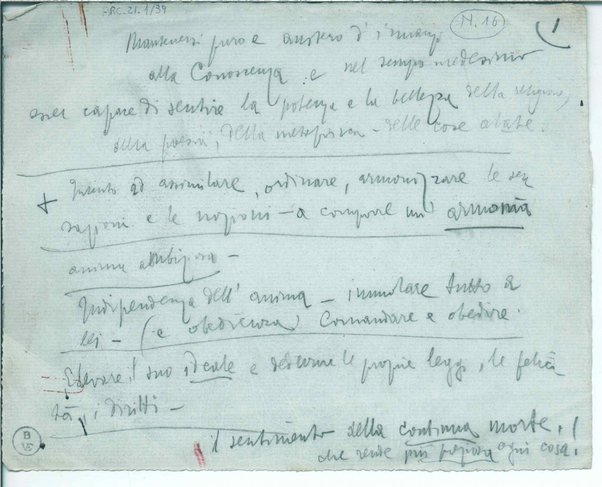 ARC.21.1/39
N. 16
1
Mantenersi puro e austero d'innanzi
alla Conoscenza e nel tempo medesimo
esser capace di sentire la potenza e la bellezza della religione,
della poesia, della metafisica - delle cose alate.
+ Intento ad assimilare, ordinare, armonizzare le sen
sazioni e le nozioni - a comporre un' armonia
anima ambiziosa -
Indipendenza dell'anima - immolare tutto a
lei - (e obbedienza) Comandare e obedire.
Elevare il suo ideale e dedurne le proprie leggi, le felici
tà, i diritti -
il sentimento della continua morte,
che rende più preziosa ogni cosa!